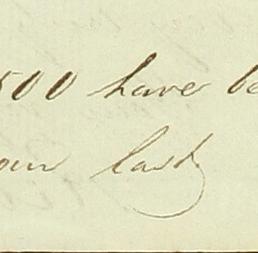 500 have be
our last